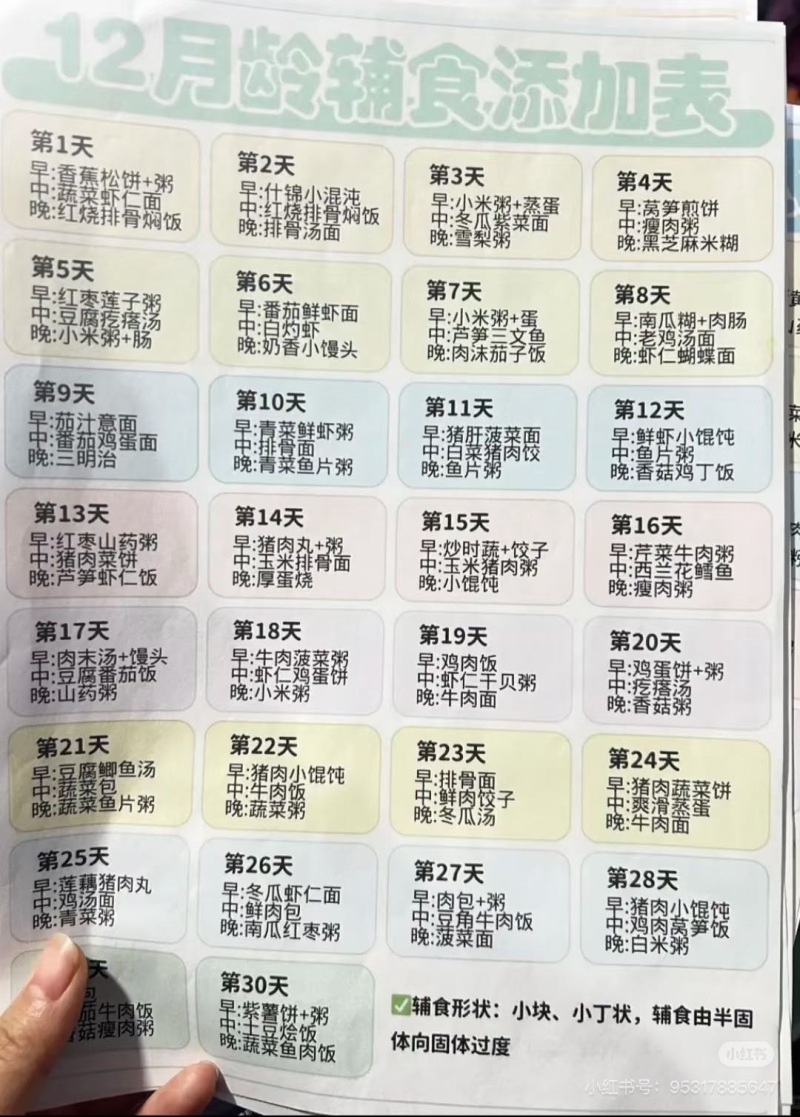 12月龄辅食添加表
第1天
早:香蕉松饼+粥
中:蔬菜虾仁面
晚:红烧排骨焖饭
第2天
早:什锦小混沌
中:红烧排骨焖饭
晚:排骨汤面
第3天
早:小米粥+蒸蛋
中:冬瓜紫菜面
晚:雪梨粥
第4天
早:莴笋煎饼
中:瘦肉粥
晚:黑芝麻米糊
第5天
早:红枣莲子粥
中:豆腐疙瘩汤
晚:小米粥+肠
第6天
早:番茄鲜虾面
中:白灼虾
晚:奶香小馒头
第7天
早:小米粥+蛋
中:芦笋三文鱼
晚:肉沫茄子饭
第8天
早:南瓜糊+肉肠
中:老鸡汤面
晚:虾仁蝴蝶面
第9天
早:茄汁意面
中:番茄鸡蛋面
晚:三明治
第10天
早:青菜鲜虾粥
中:排骨面
晚:青菜鱼片粥
第11天
早:猪肝菠菜面
中:白菜猪肉饺
晚:鱼片粥
第12天
早:鲜虾小馄饨
中:鱼片粥
晚:香菇鸡丁饭
第13天
早:红枣山药粥
中:猪肉菜饼
晚:芦笋虾仁饭
第14天
早:猪肉丸+粥
中:玉米排骨面
晚:厚蛋烧
第15天
早:炒时蔬+饺子
中:玉米猪肉粥
晚:小馄饨
第16天
早:芹菜牛肉粥
中:西兰花鳕鱼
晚:瘦肉粥
第17天
早:肉末汤+馒头
中:豆腐番茄饭
晚:山药粥
第18天
早:牛肉菠菜粥
中:虾仁鸡蛋饼
晚:小米粥
第19天
早:鸡肉饭
中:虾仁干贝粥
晚:牛肉面
第20天
早:鸡蛋饼+粥
中:疙瘩汤
晚:香菇粥
第21天
早:豆腐鲫鱼汤
中:蔬菜包
晚:蔬菜鱼片粥
第22天
早:猪肉小馄饨
中:牛肉饭
晚:蔬菜粥
第23天
早:排骨面
中:鲜肉饺子
晚:冬瓜汤
第24天
早:猪肉蔬菜饼
中:爽滑蒸蛋
晚:牛肉面
第25天
早:莲藕猪肉丸
中:鸡汤面
晚:青菜粥
第26天
早:冬瓜虾仁面
中:鲜肉包
晚:南瓜红枣粥
第27天
早:肉包+粥
中:豆角牛肉饭
晚:菠菜面
第28天
早:猪肉小馄饨
中:鸡肉莴笋饭
晚:白米粥
天
茄牛肉饭
菇瘦肉粥
第30天
早:紫薯饼+粥
中:土豆烩饭
晚:蔬菜鱼肉饭
✅辅食形状：小块、小丁状，辅食由半固
体向固体过度
小红书
小红书号：95317835647